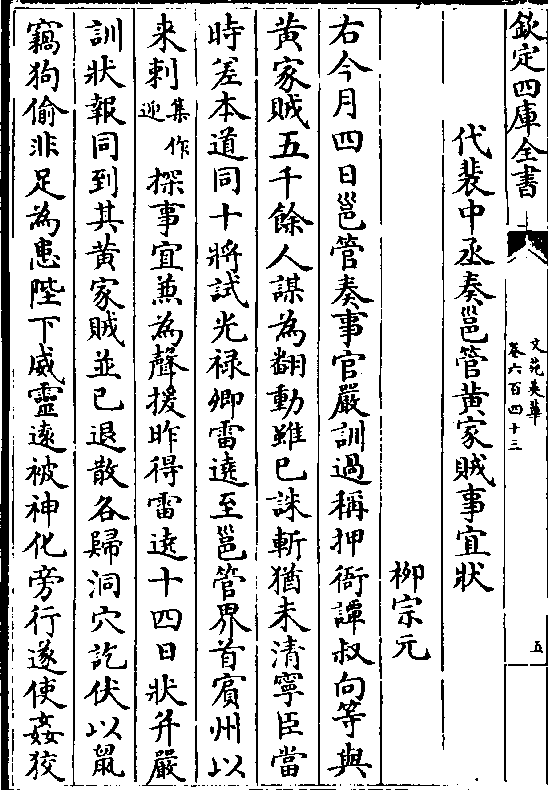 欽定四庫全書
文苑英華
卷六百四十三
五
代裴中丞奏邕管黄家賊事宜狀
栁宗元
右今月四日邕管奏事官嚴訓過稱押衙譚叔向等與
黄家賊五千餘人謀為翻動雖已誅斬猶未清寧臣當
時差本道同十將試光禄卿雷遶至邕管界首賔州以
来刺集作迎探事宜兼為聲援昨得雷遶十四日狀并嚴
訓狀報同到其黄家賊並已退散各歸洞穴訖伏以鼠
竊狗偷非足為患陛下威靈逺被神化旁行遂使姦狡